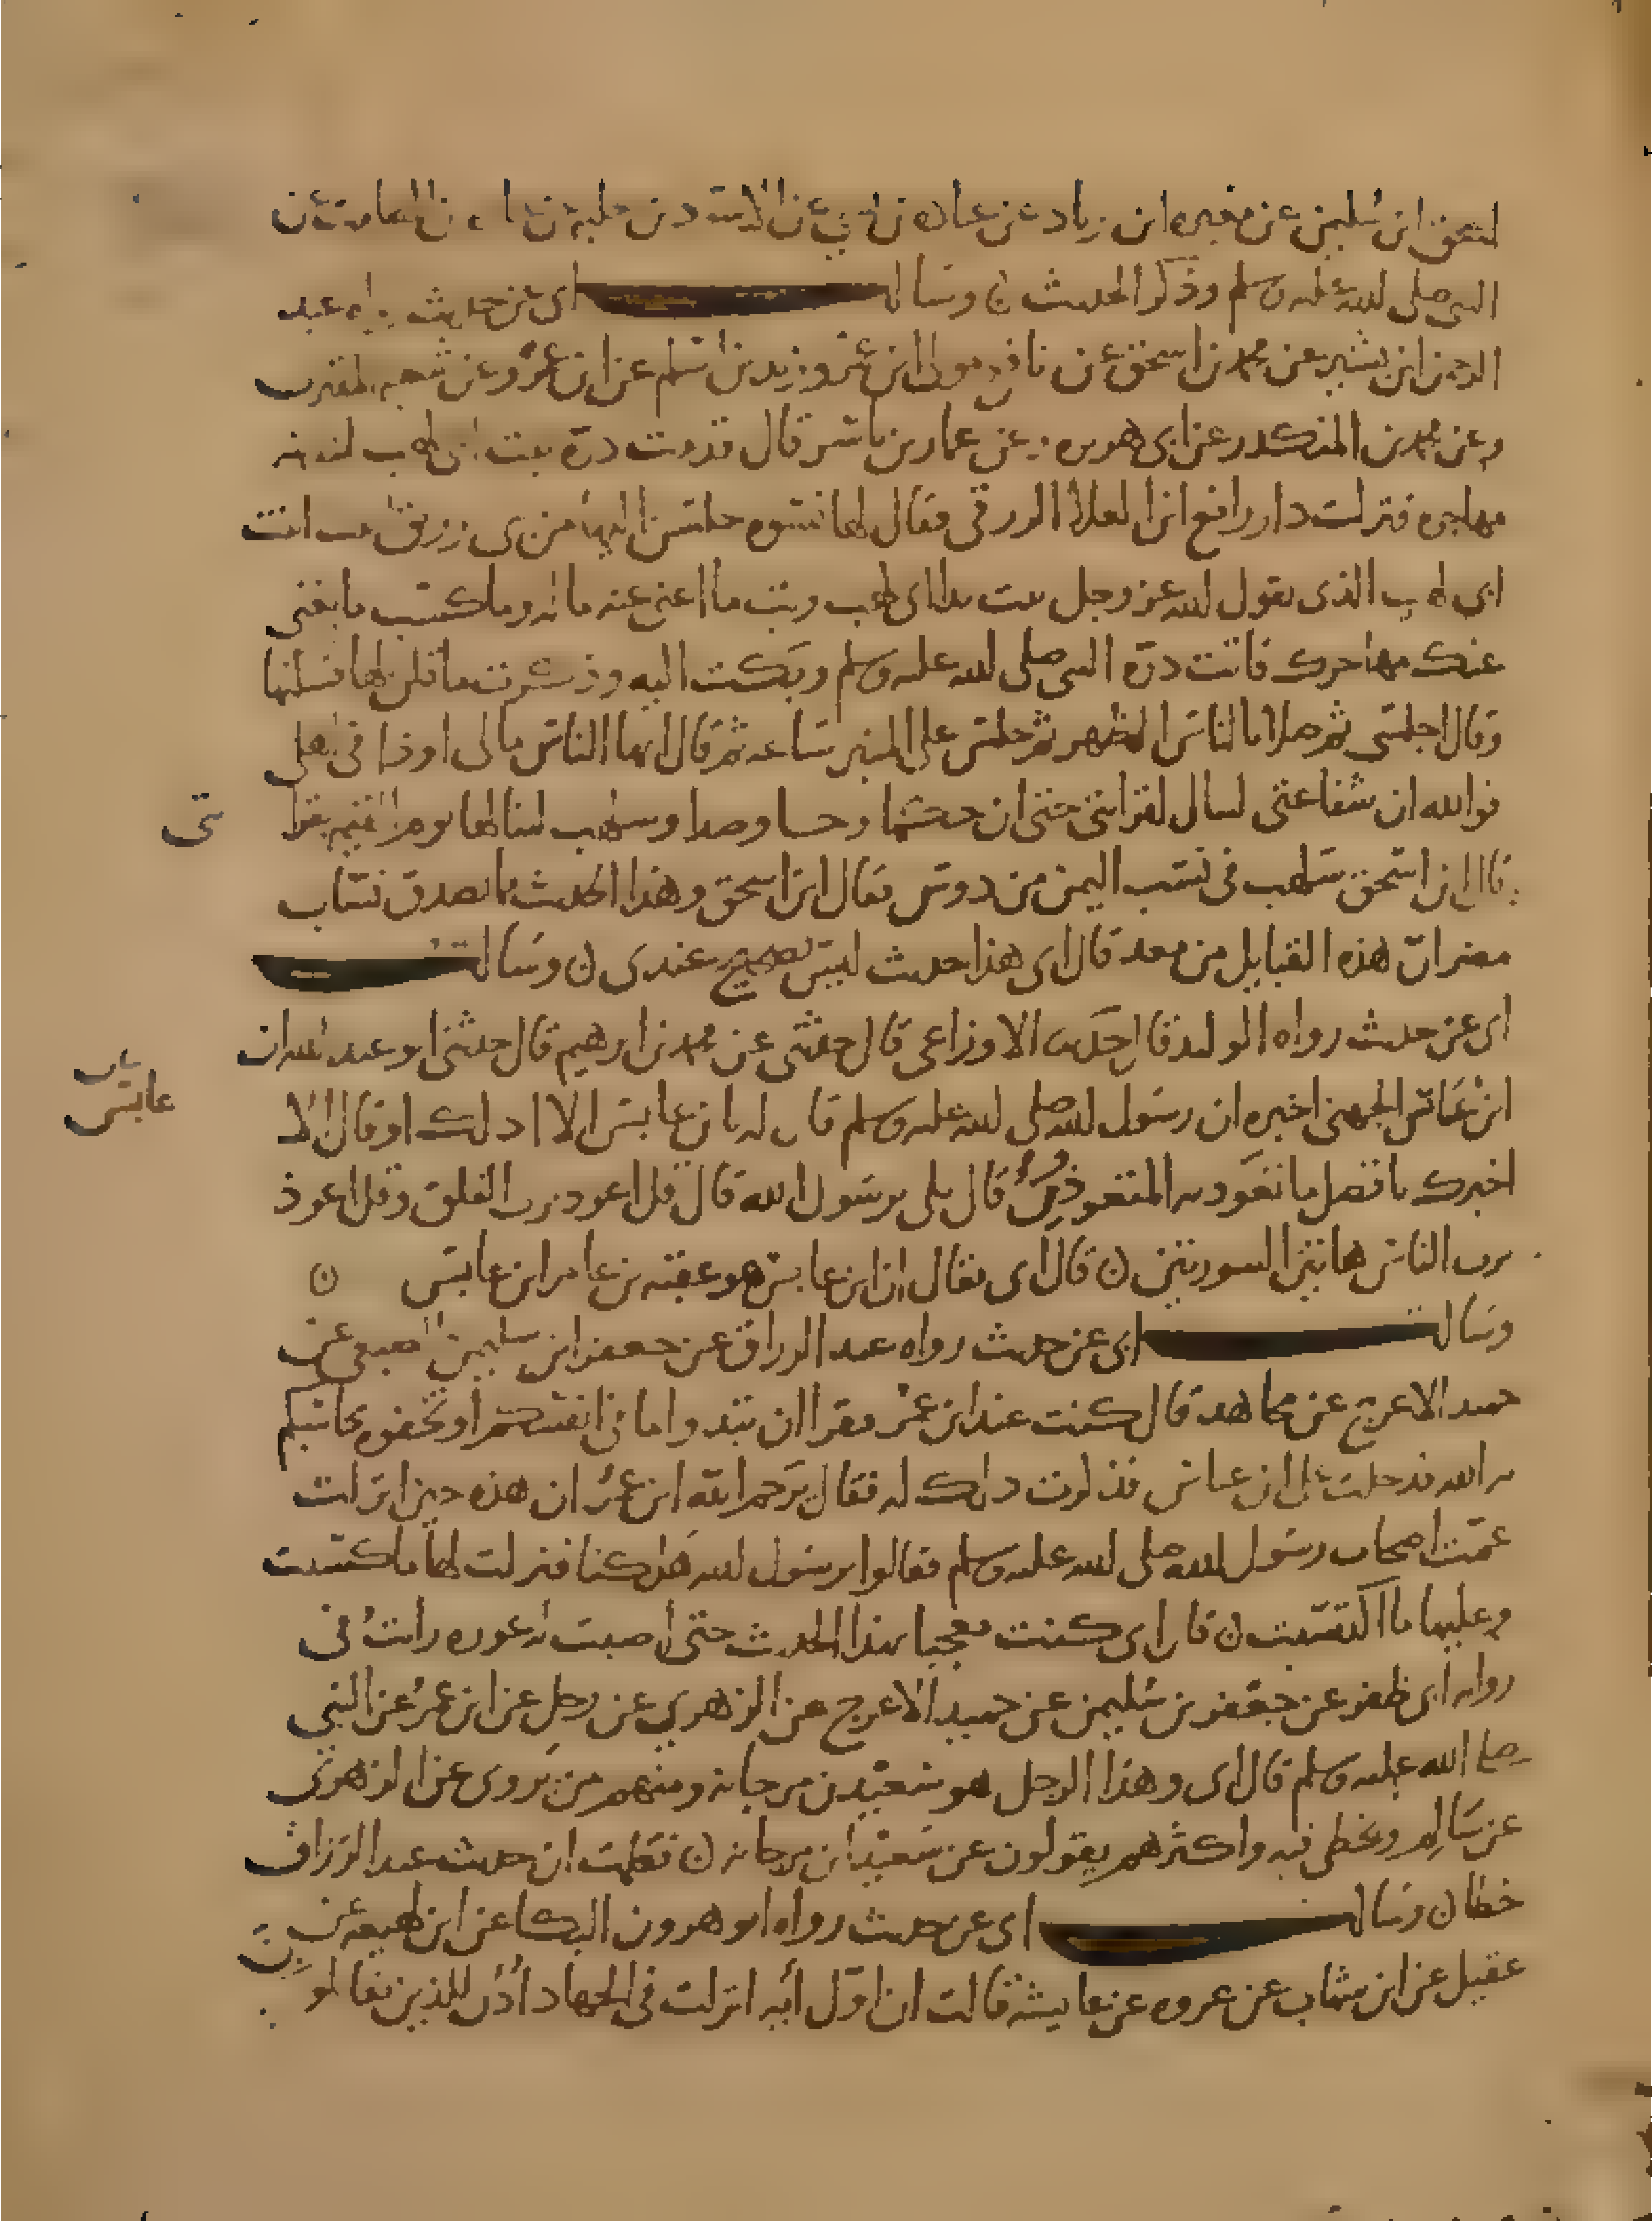 اسحق ابن سليمن عن مغيره ابن زياد عن عباده بن نسي عن الاسود بن ثعلبه عن عباده بن الصامت عن
النبي صلى الله عليه وسلم وذكر الحديث ن وسالت ابى عن حديث رواه عبد
الرحمن ابن بشير عن محمد بن اسحق عن نافع مولى ابن عمر وزيد بن اسلم عن ابن عمر وعن سعيد المقبرى
وعن محمد بن المنكدر عن ابى هريره وعن عمار بن ياسر قال قدمت درة بنت ابى لهب المدينه
مهاجره فنزلت دار رافع ابن المعلا الزرقى فقال لها نسوه جلسن اليها من بنى زريق بنت انت
ابى لهب الذى يقول الله عز وجل تبت يدا ابى لهب وتب ما اغنى عنه ماله وما كسب ما يغنى
عنك مهاجرك فاتت درة النبى صلى الله عليه وسلم وبكت اليه وذكرت ما قلن لها فسكنها
وقال اجلسى ثم صلا بالناس الظهر ثم جلس على المنبر ساعه ثم قال ايها الناس مالى اوذا فى اهلى
فوالله ان شفاعتى لتنال لقرابتى حتى ان حكما وحا وصدا وسلهب لتنالها يوم القيمه بقرا
بتى
فقال ابن اسحق سلهب فى نسب اليمن من دوس فقال ابن اسحق وهذا الحديث مما يصدق نساب
مضر ان هذه القبايل من معد قال ابى هذا حديث ليس بصحيح عندى ن وسالت
ابى عن حديث رواه الوليد قال حدثنا الاوزاعى قال حدثنى عن محمد بن ابرهيم قال حدثنى ابو عبد الله ان
ابن عباس الجهنى اخبره ان رسول الله صلى الله عليه وسلم قال له يا بن عابس الا ادلك او قال الا
عابس
اخبرك بافضل ما تعوذ به المتعوذون قال بلى يرسول الله قال قل اعوذ برب الفلق وقل اعوذ
برب الناس هاتين السورتين ن قال ابى يقال ان ابن عابس هو عقبه بن عامر ابن عابس ن
وسالت ابى عن حديث رواه عبد الرزاق عن جعفر ابن سليمن الضبعى عن
حميد الاعرج عن مجاهد قال كنت عند ابن عمر فقرا ان تبدوا ما فى انفسكم او تخفوه يحاسبكم
به الله فدخلت على ابن عباس فذكرت ذلك له فقال يرحم الله ابن عمر ان هذه حين انزلت
غمت اصحاب رسول الله صلى الله عليه وسلم فقالوا يرسول الله هلكنا فنزلت لها ما كسبت
وعليها ما اكتسبت ن قال ابى كنت معجبا بهذا الحديث حتى اصبت له عوره رايت فى
روايه ابى ظفر عن جعفر بن سليمن عن حميد الاعرج عن الزهري عن رجل عن ابن عمر عن النبي
صلى الله عليه وسلم قال ابى وهذا الرجل هو سعيد بن مرجانه ومنهم من يروى عن الزهرى
عن سالم ويخطى فيه واكثرهم يقولون عن سعيد ابن مرجانه ن فعلمت ان حديث عبد الرزاق
خطا ن وسالت ابى عن حديث رواه ابو هرون البكا عن ابن لهيعه عن
عقيل عن ابن شهاب عن عروه عن عايشه قالت ان اول آيه انزلت فى الجهاد أذن للذين يقاتلون